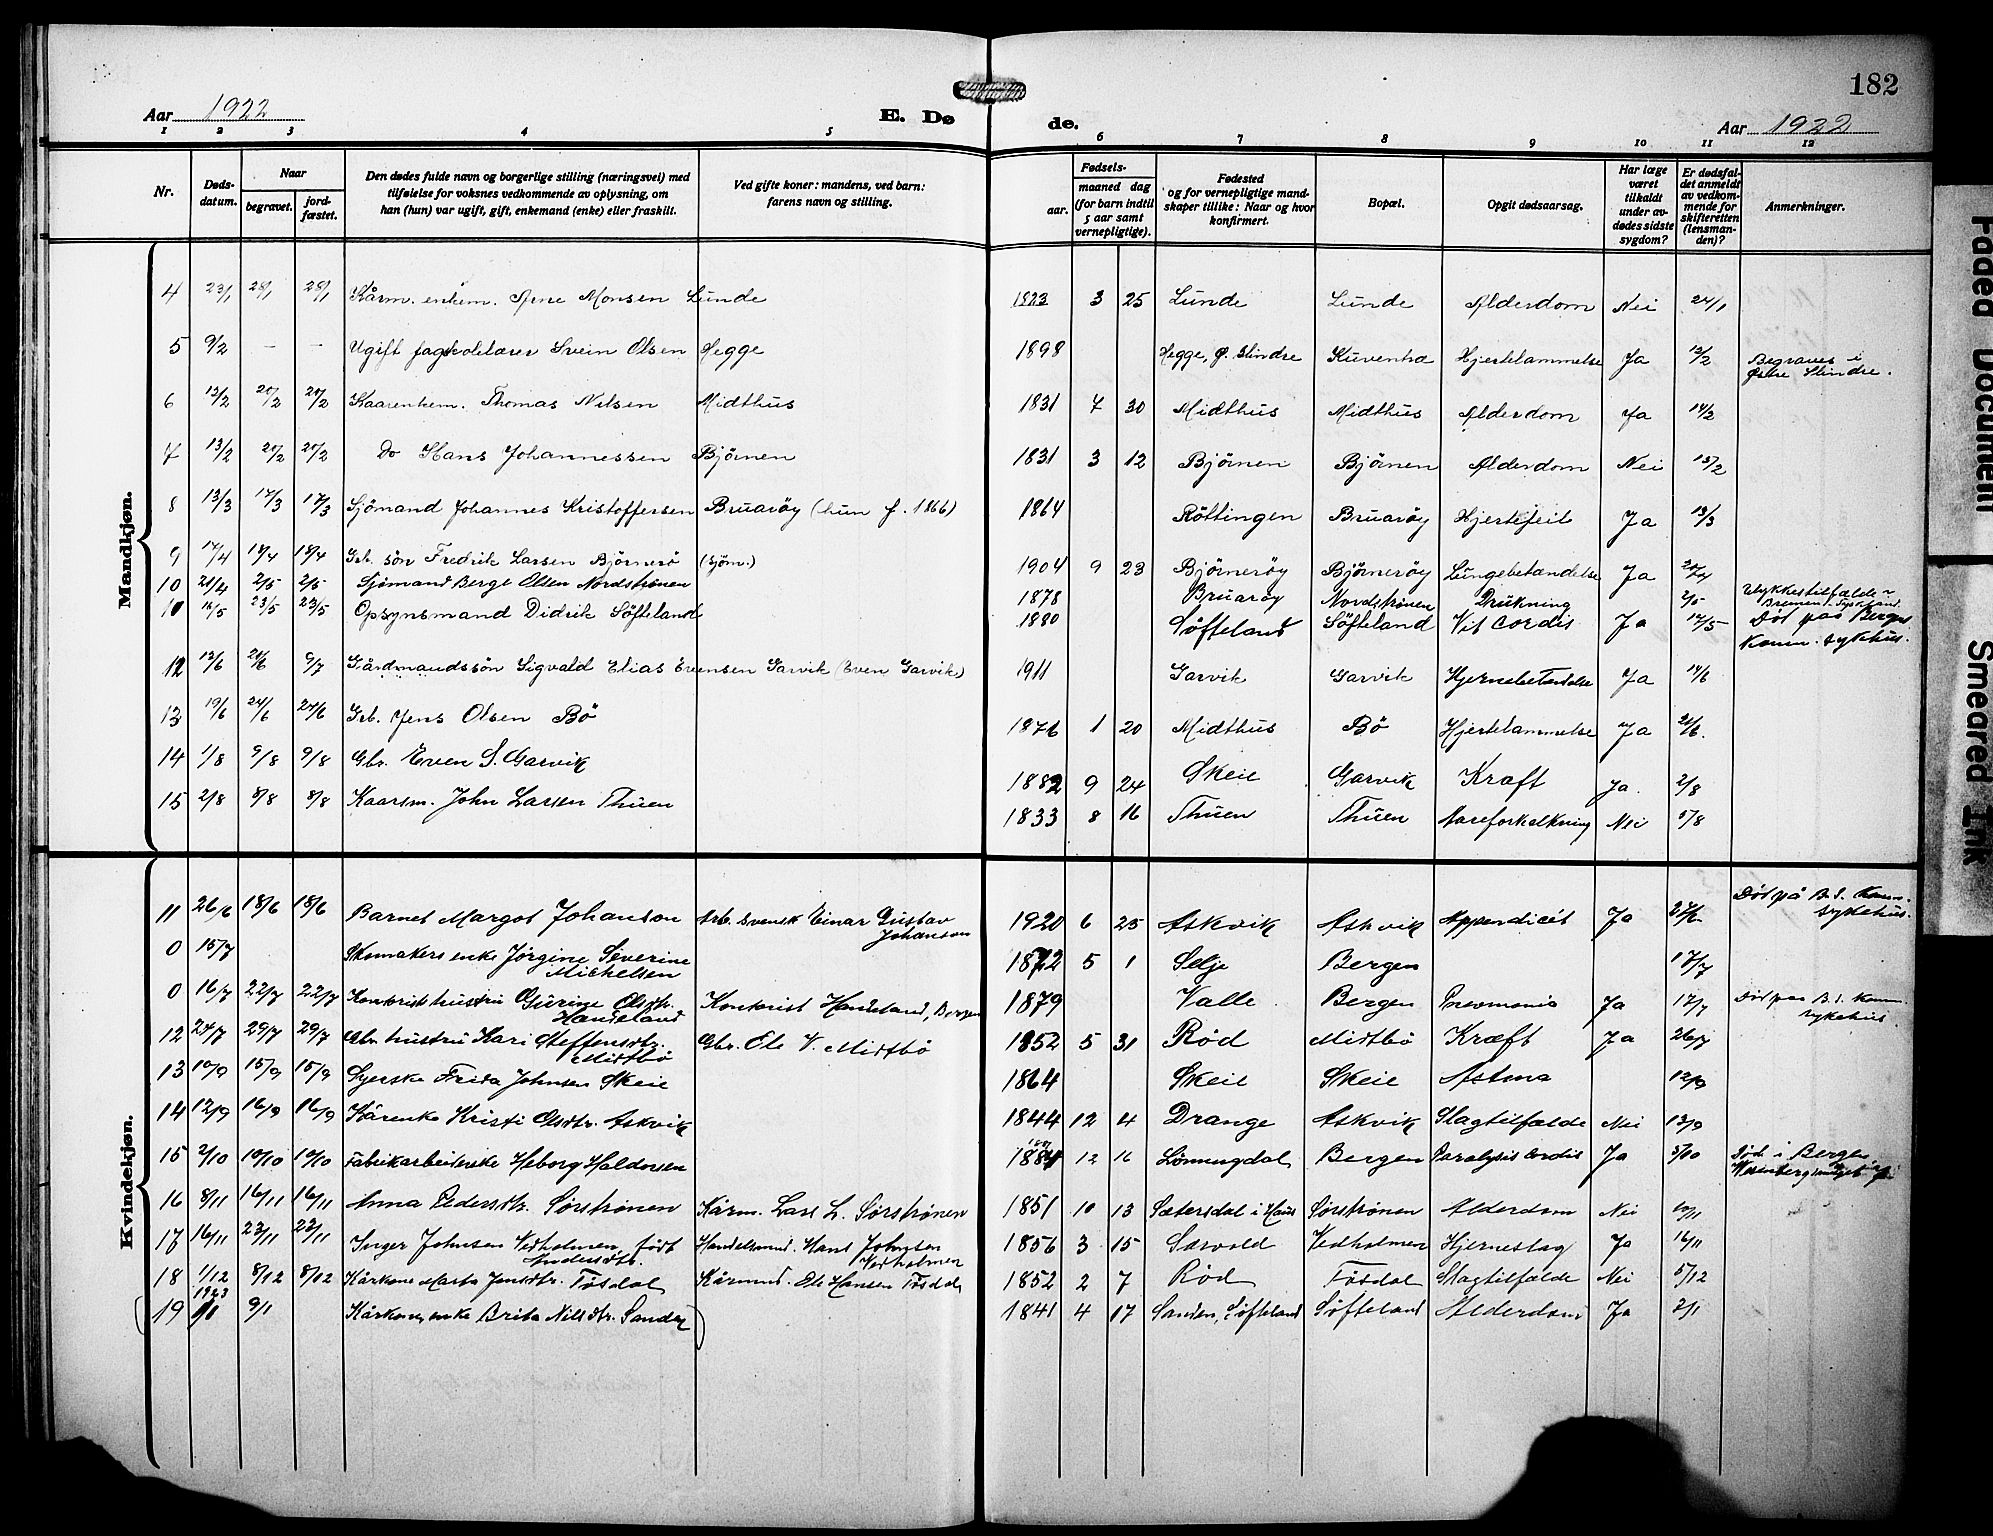 182
Aar 1922
E. Døde.
Aar 1922
1 2 3 4 5 6 7 8 9 10 11 12
Nr.
Døds-datum.
Naar
begravet.
jord-fæstet.
Den dødes fulde navn og borgerlige stilling (næringsvei) med
tilføielse for voksnes vedkommende av oplysning, om
han (hun) var ugift, gift, enkemand (enke) eller fraskilt.
Ved gifte koner: mandens, ved barn:
farens navn og stilling.
Fødsels-
aar. maaned dag
(for barn indtil
5 aar samt
vernepligtige).
Fødested
og for vernepligtige mand-
skaper tillike: Naar og hvor
konfirmert.
Bopæl.
Opgit dødsaarsag.
Har læge
været
tilkaldt
under av-
dødes sidste
sygdom?
Er dødsfal-
det anmeldt
av vedkom-
mende for
skifteretten
(lensman-
den)?
Anmerkninger.
Mandkjøn.
4 23/1 28/1 28/1 Kårm. enkem. Arne Monsen Lunde 1823 3 25 Lunde Lunde Alderdom Nei 24/1
5 9/2 — — Ugift Svein Olsen Hegge 1898 Hegge, Ø. Slindre Hjertelammelse Ja 13/2 Begraves i
Østre Slindre.
6 13/2 20/2 20/2 Kaarenkem. Thomas Nilsen Midthus 1831 7 30 Midthus Midthus Alderdom Ja 14/2
7 13/2 20/2 20/2 Do Hans Johannessen Bjørnen 1831 3 12 Bjørnen Bjørnen Alderdom Nei 15/2
8 13/3 17/3 17/3 Sjömand Johannes Kristoffersen Bruarøy (hun f. 1866) 1864 Röttingen Bruarøy Hjertefeil Ja 13/3
9 17/4 18/4 18/4 Grb. sön Fredrik Larsen Björnerö (Sjöm.) 1904 9 23 Bjørnerøy Bjørnerøy Lungebetændelse Ja 20/4
10 21/4 2/5 2/5 Sjömand Berge Olsen Nordstrønen 1878 Bruarøy Nordstrønen Drukning 2/5 Ulykkestilfælde
Bremen - Tyskland.
11 15/5 23/5 23/5 Opsynsmand Didrik Söfteland 1880 Søfteland Søfteland Vit cordis Ja 17/5 Død paa Bergen
Komm. sykehus.
12 13/6 21/6 9/7 Gårdmandssön Sigvald Elias Evensen Garvik (Even Garvik) 1911 Garvik Garvik Hjernebetændelse Ja 14/6
13 19/6 24/6 24/6 Grb. Jens Olsen Bö 1876 1 20 Midthus Bø Hjertelammelse Ja 21/6.
14 1/8 9/8 9/8 Gbr. Even S. Garvik 1882 9 24 Skeie Garvik Kræft Ja. 2/8
15 2/8 8/8 8/8 Kaarm. John Larsen Thuen 1833 8 16 Thuen Thuen Aareforkalkning Nei 5/8
Kvindekjøn.
11 26/6 18/6 18/6 Barnet Margot Johanson Arb. svensk Einar Gustav
Johanson 1920 6 25 Askvik Askvik Appendicit Ja 27/6 Død på B. S. Kom.
sykehus.
0 15/7 Skomakers enke Jörgine Severine
Michelsen 1872 5 1 Selje Bergen 17/7
0 16/7 22/7 22/7 Kontorist hustru Gurine Olsdtr.
Handeland Kontorist Handeland, Bergen 1879 Valle Bergen Pneumonia Ja 17/7 Død paa B. S. kom.
sykehus.
12 24/7 29/7 29/7 Gbr. hustru Kari Steffensdtr.
Midtbö Gbr. Ole V. Midtbö 1852 5 31 Rød Midtbö Kræft Ja 26/7
13 10/9 15/9 15/9 Syerske Frida Johnsen Skeie 1864 Skeie Skeie Astma 12/9
14 12/9 16/9 16/9 Kårenke Kristi Olsdtr. Askvik 1844 12 4 Drange Askvik Slagtilfælde Nei 13/9
15 2/10 10/10 10/10 Fabrikarbeiderske Heborg Haldorsen 1884 12 16 Lönningdal Bergen Paralysis cordis Ja 3/10 Død i Bergen,
16 8/11 16/11 16/11 Anna Pedersdtr. Sørstrønen Kårm. Lars L. Sørstrønen 1851 10 13 Sætersdal i Haus Sørstrønen Alderdom Nei 10/11
17 16/11 23/11 23/11 Inger Johnsen Vedholmen, født
Andersdtr. Handelsmd. Hans Johnsen
Vedholmen 1856 3 15 Sævold Vedholmen Hjerneslag Ja 16/11
18 1/12 8/12 8/12 Kårkone Marta Jensdtr. Tösdal Kårmd. Ole Hansen Tösdal 1852 2 7 Rød Tösdal Slagtilfælde Nei 5/12
1923
(19 1/1 9/1 Kårkone, enke Brita Nilsdtr. Sanden) 1841 4 17 Sanden, Søfteland Søfteland Alderdom Ja 2/1
Faded Document
Smeared Ink